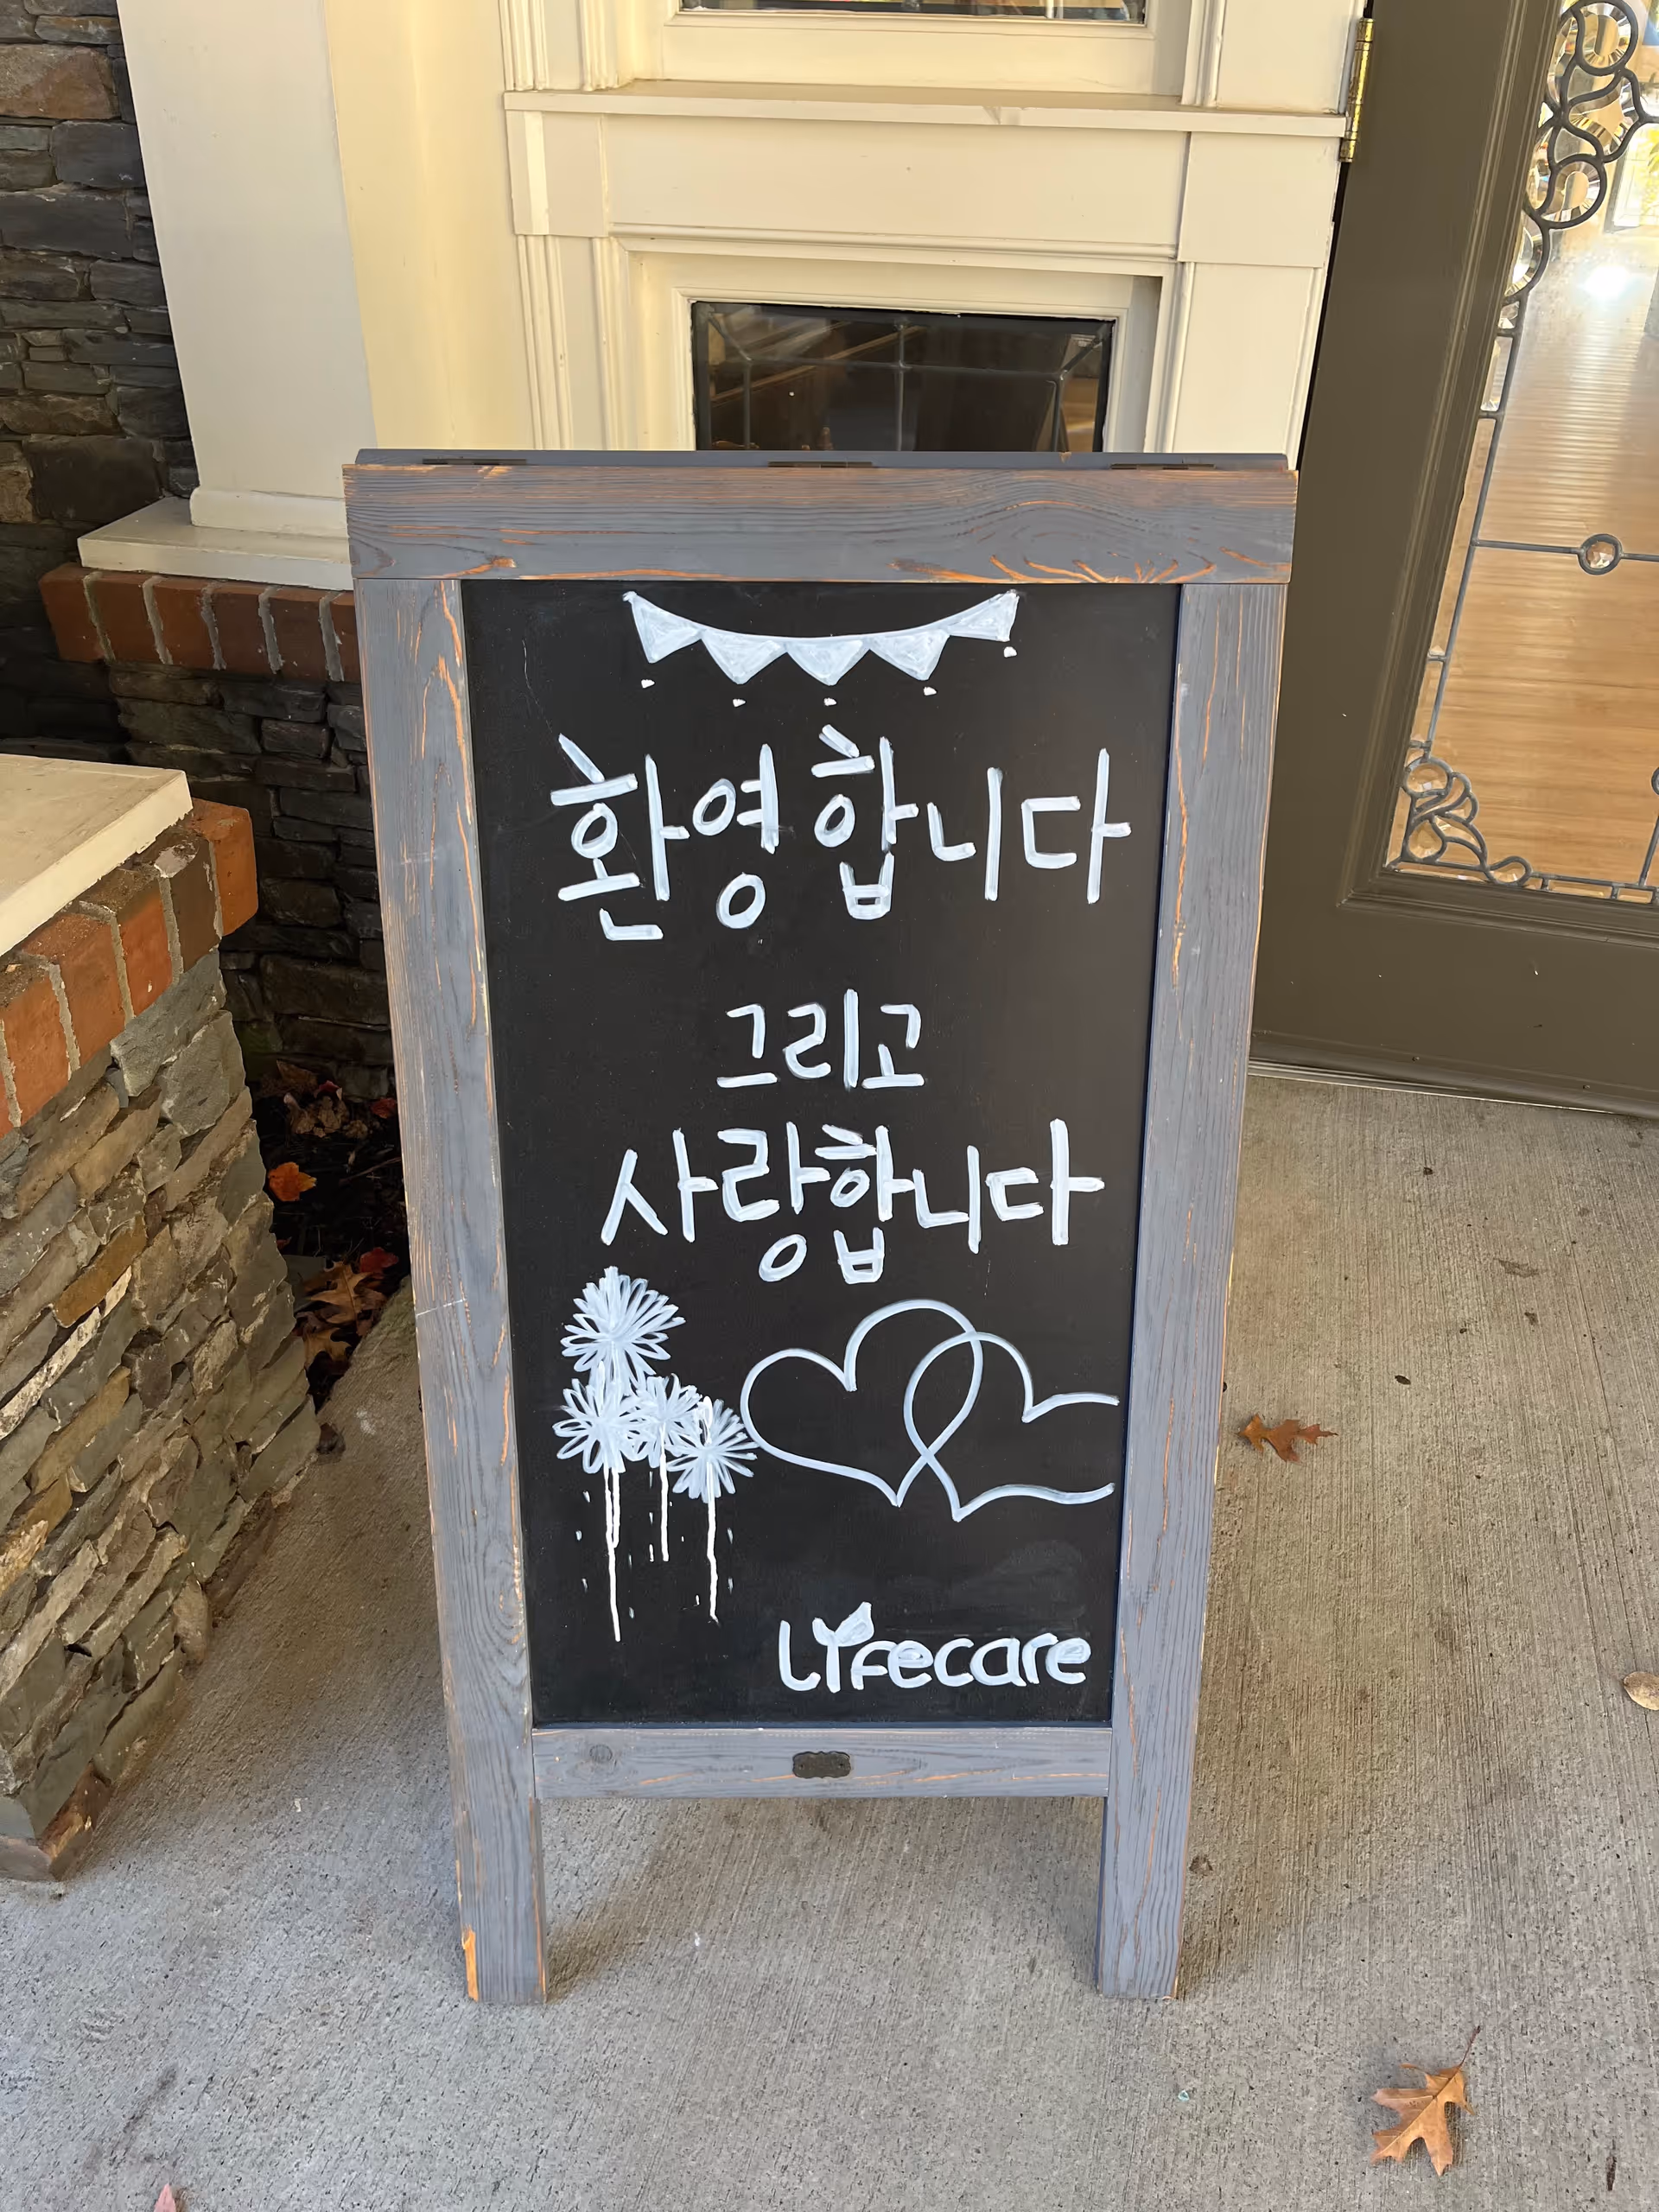 환영합니다
그리고
사랑합니다
Lyfecare